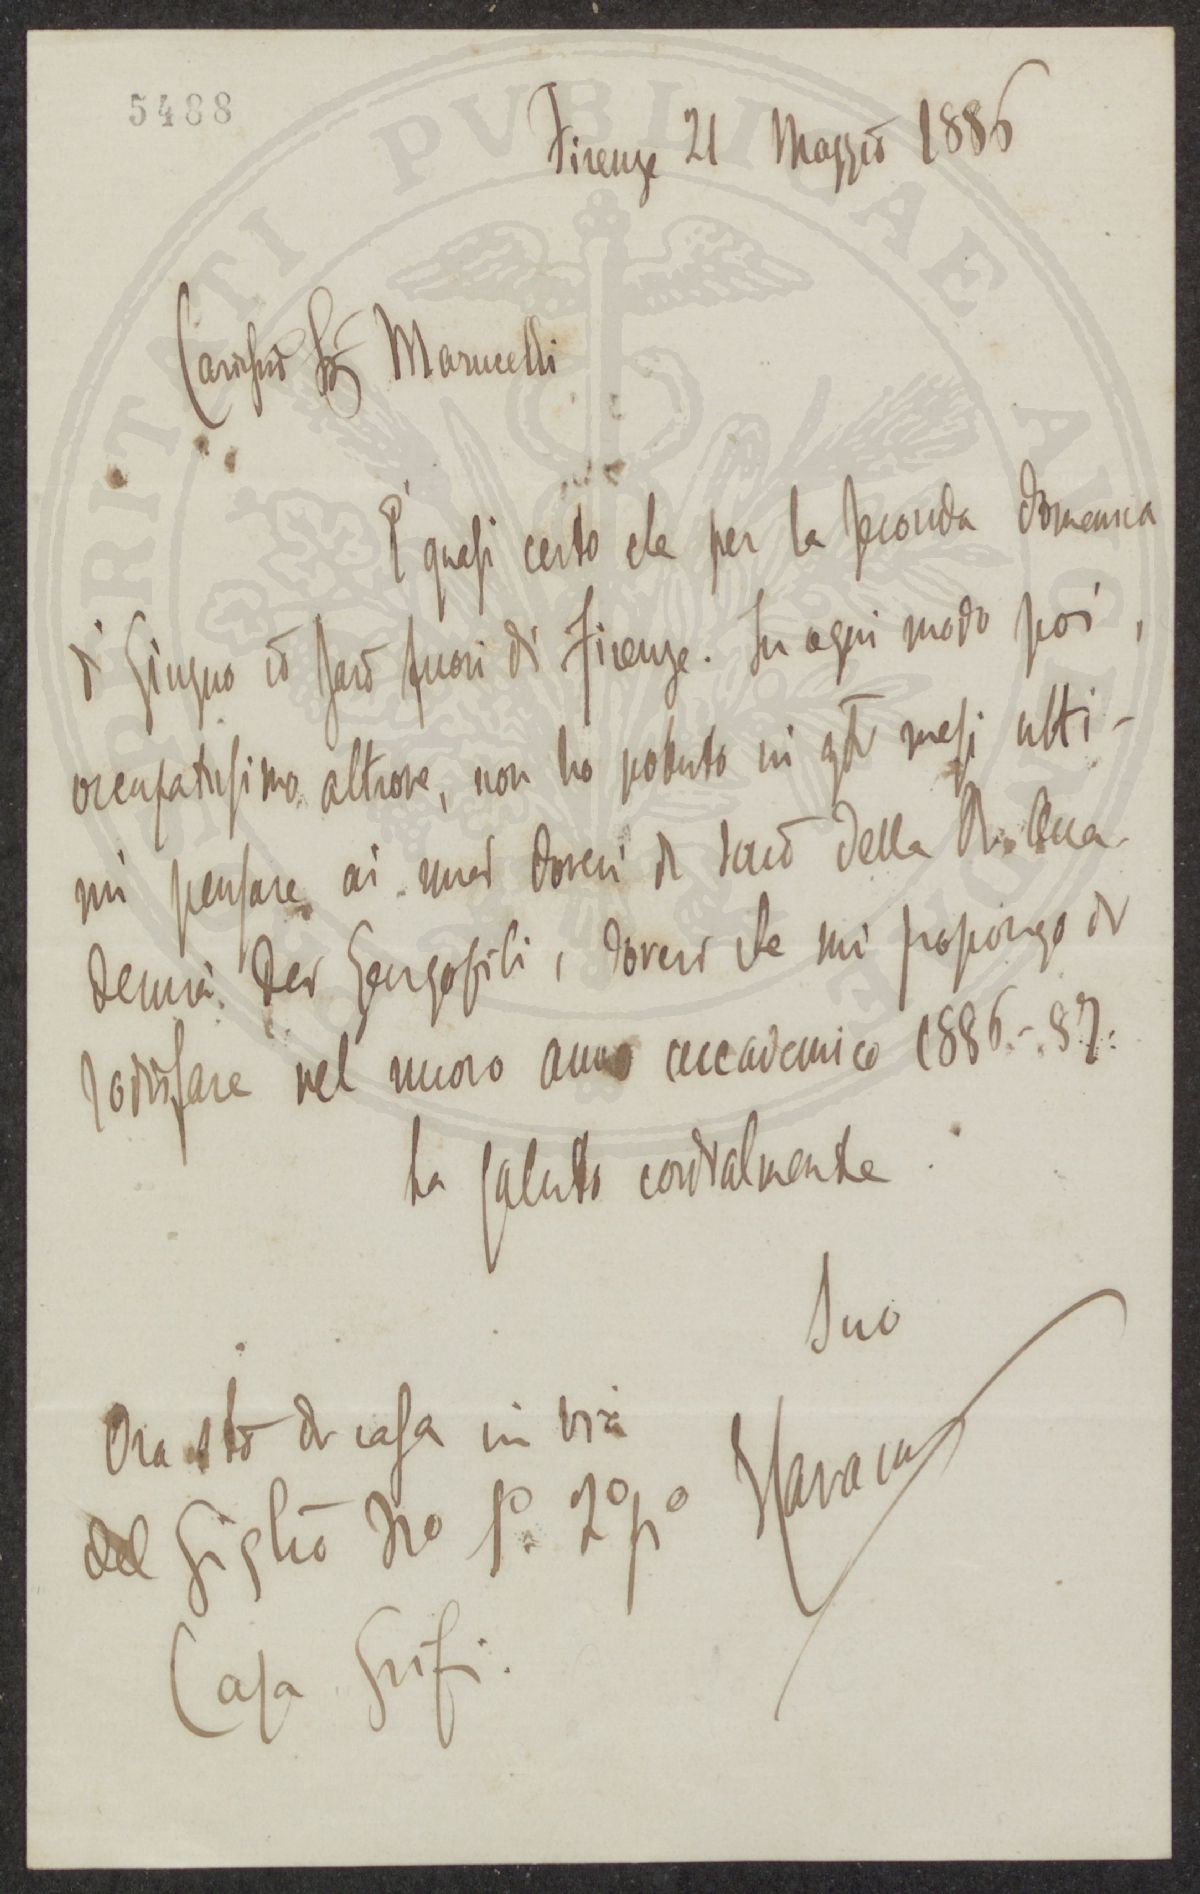 5488
Firenze 21 Maggio 1886
Carissimo Sig. Marucelli
È quasi certo che per la seconda domenica
di Giugno io sarò fuori di Firenze. In ogni modo poi,
occupatissimo altrove, non ho potuto in qti mesi ulti-
mi pensare ai miei doveri di socio della R. Acca-
demia dei Georgofili, doveri che mi propongo di
sodisfare nel nuovo anno accademico 1886.-87.
La saluto cordialmente.
Suo
Ora sto di casa in via
del Giglio No 2o po
Casa Grifi.
PVBLICAE